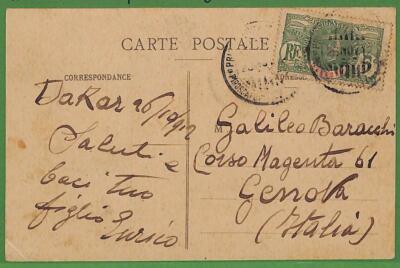 CARTE POSTALE
RF
5
CORRESPONDANCE
ADRESSE
Dakar 26/10/912
Saluti e
baci tuo
figlio
Enrico
M Galileo Baracchi
Corso Magenta 61
Genova
(Italia)